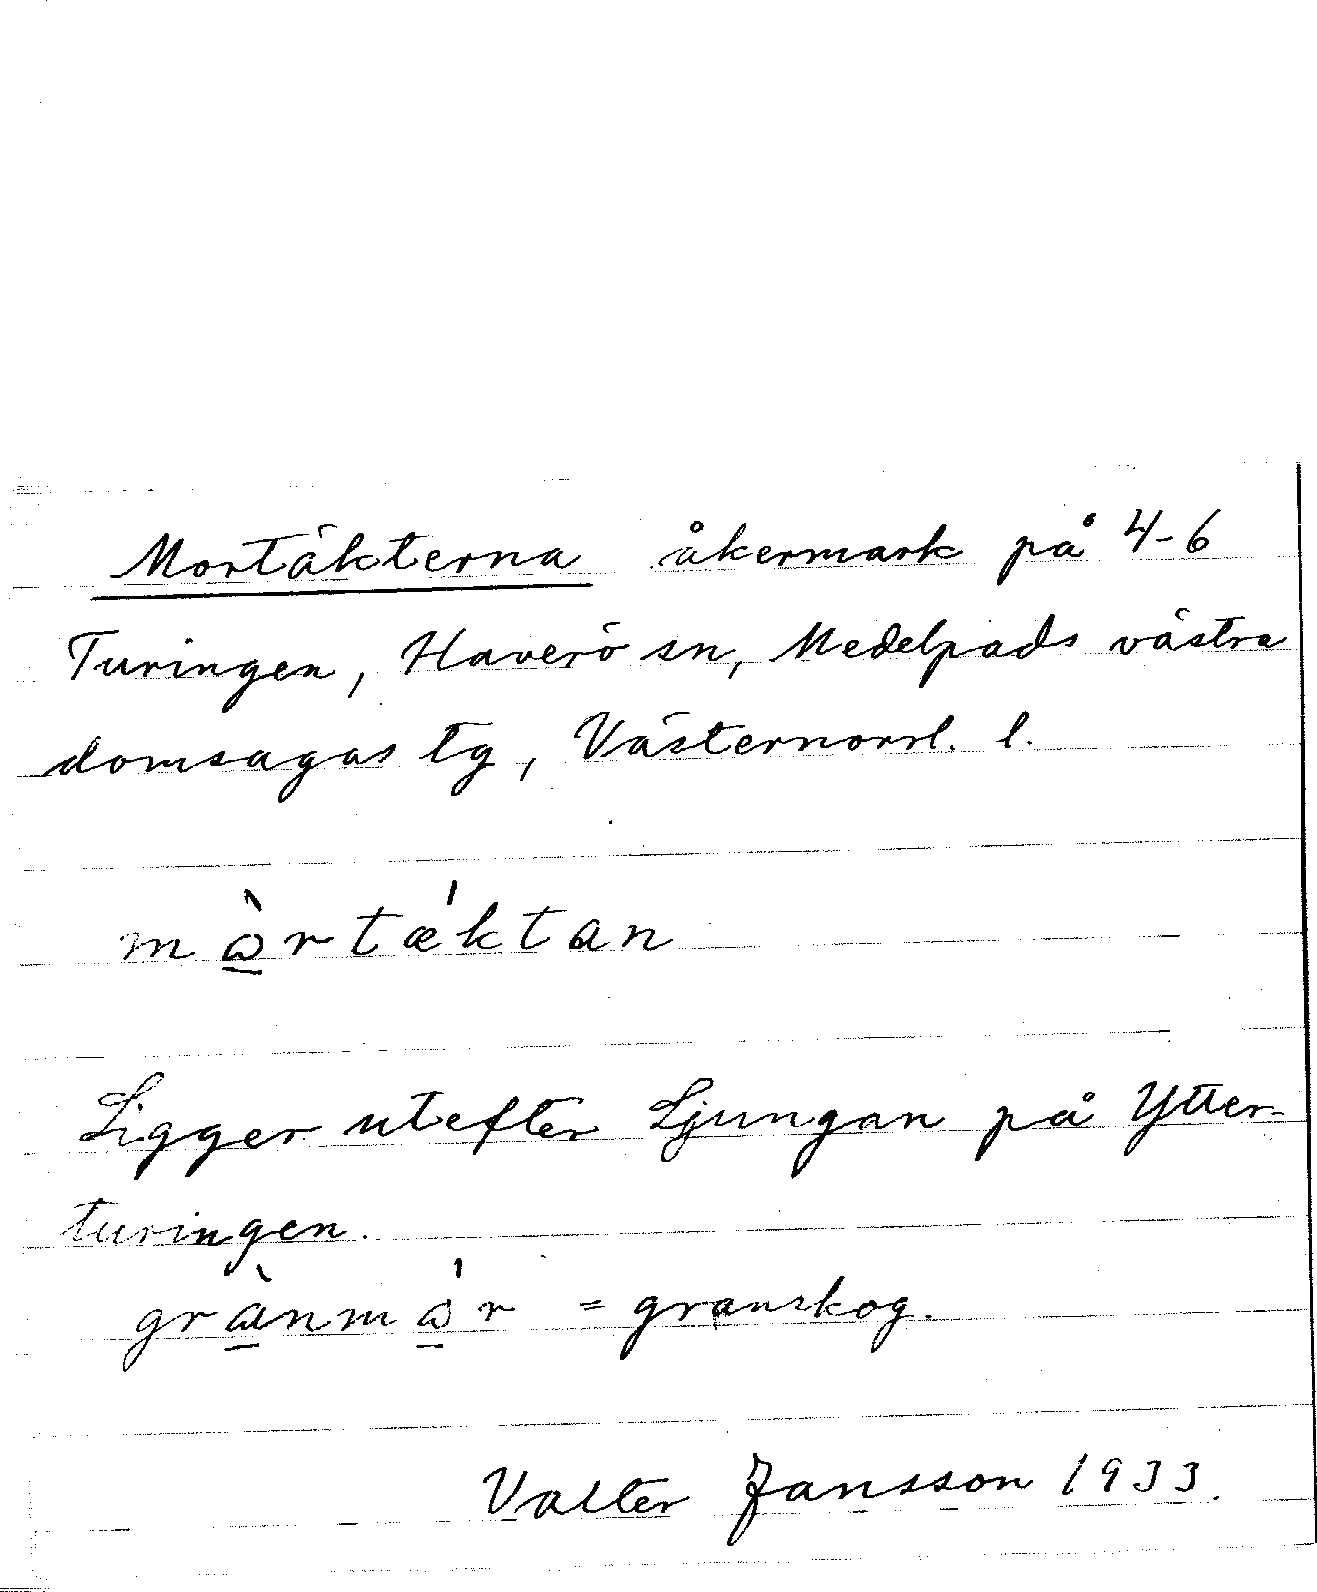 Mortäkterna åkermark på 4-6
Turingen, Haverö sn, Medelpads västra
domsagas tg, Västernorrl. l.
mɷ̠̀rtǽktan
Ligger utefter Ljungan på Ytter-
turingen.
grà̠nmɷ̠́r = granskog.
Valter Jansson 1933.